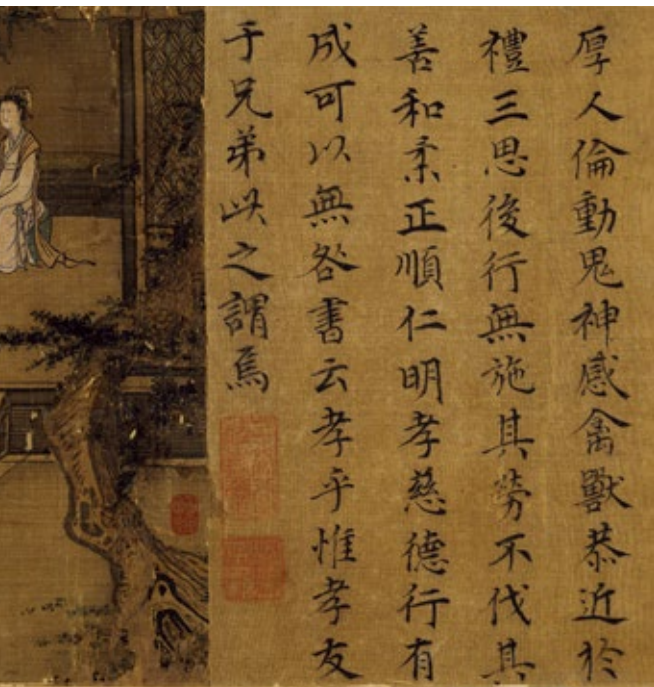 厚人倫動鬼神感禽獸恭近於
禮三思後行無施其勞不伐其
善和柔正順仁明孝慈德行有
成可以無咎書云孝乎惟孝友
于兄弟此之謂焉